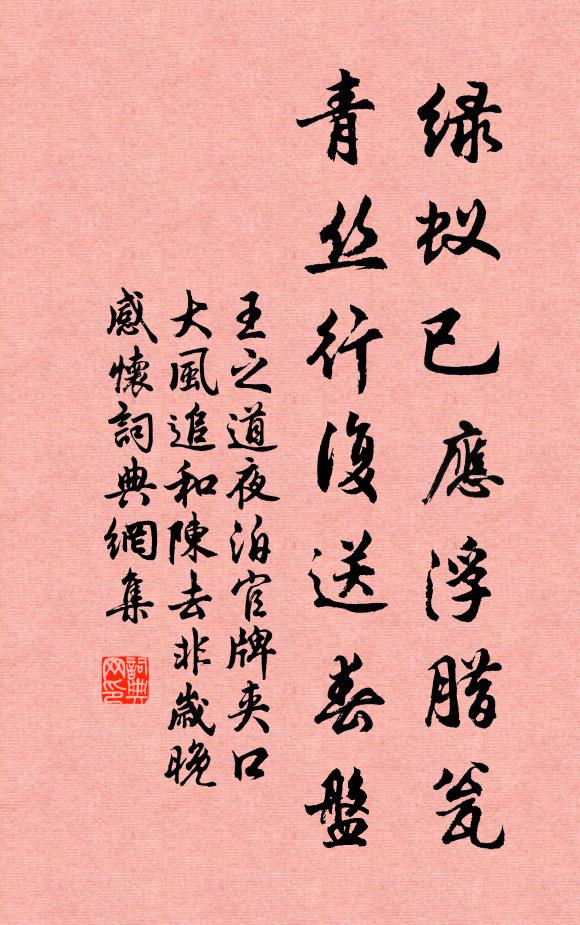 绿蚁已應浮腊瓮
青丝行復送春盤
王之道夜泊官牌夹口
大風追和陳去非歲晚
感懷詞典網集
詞典网印